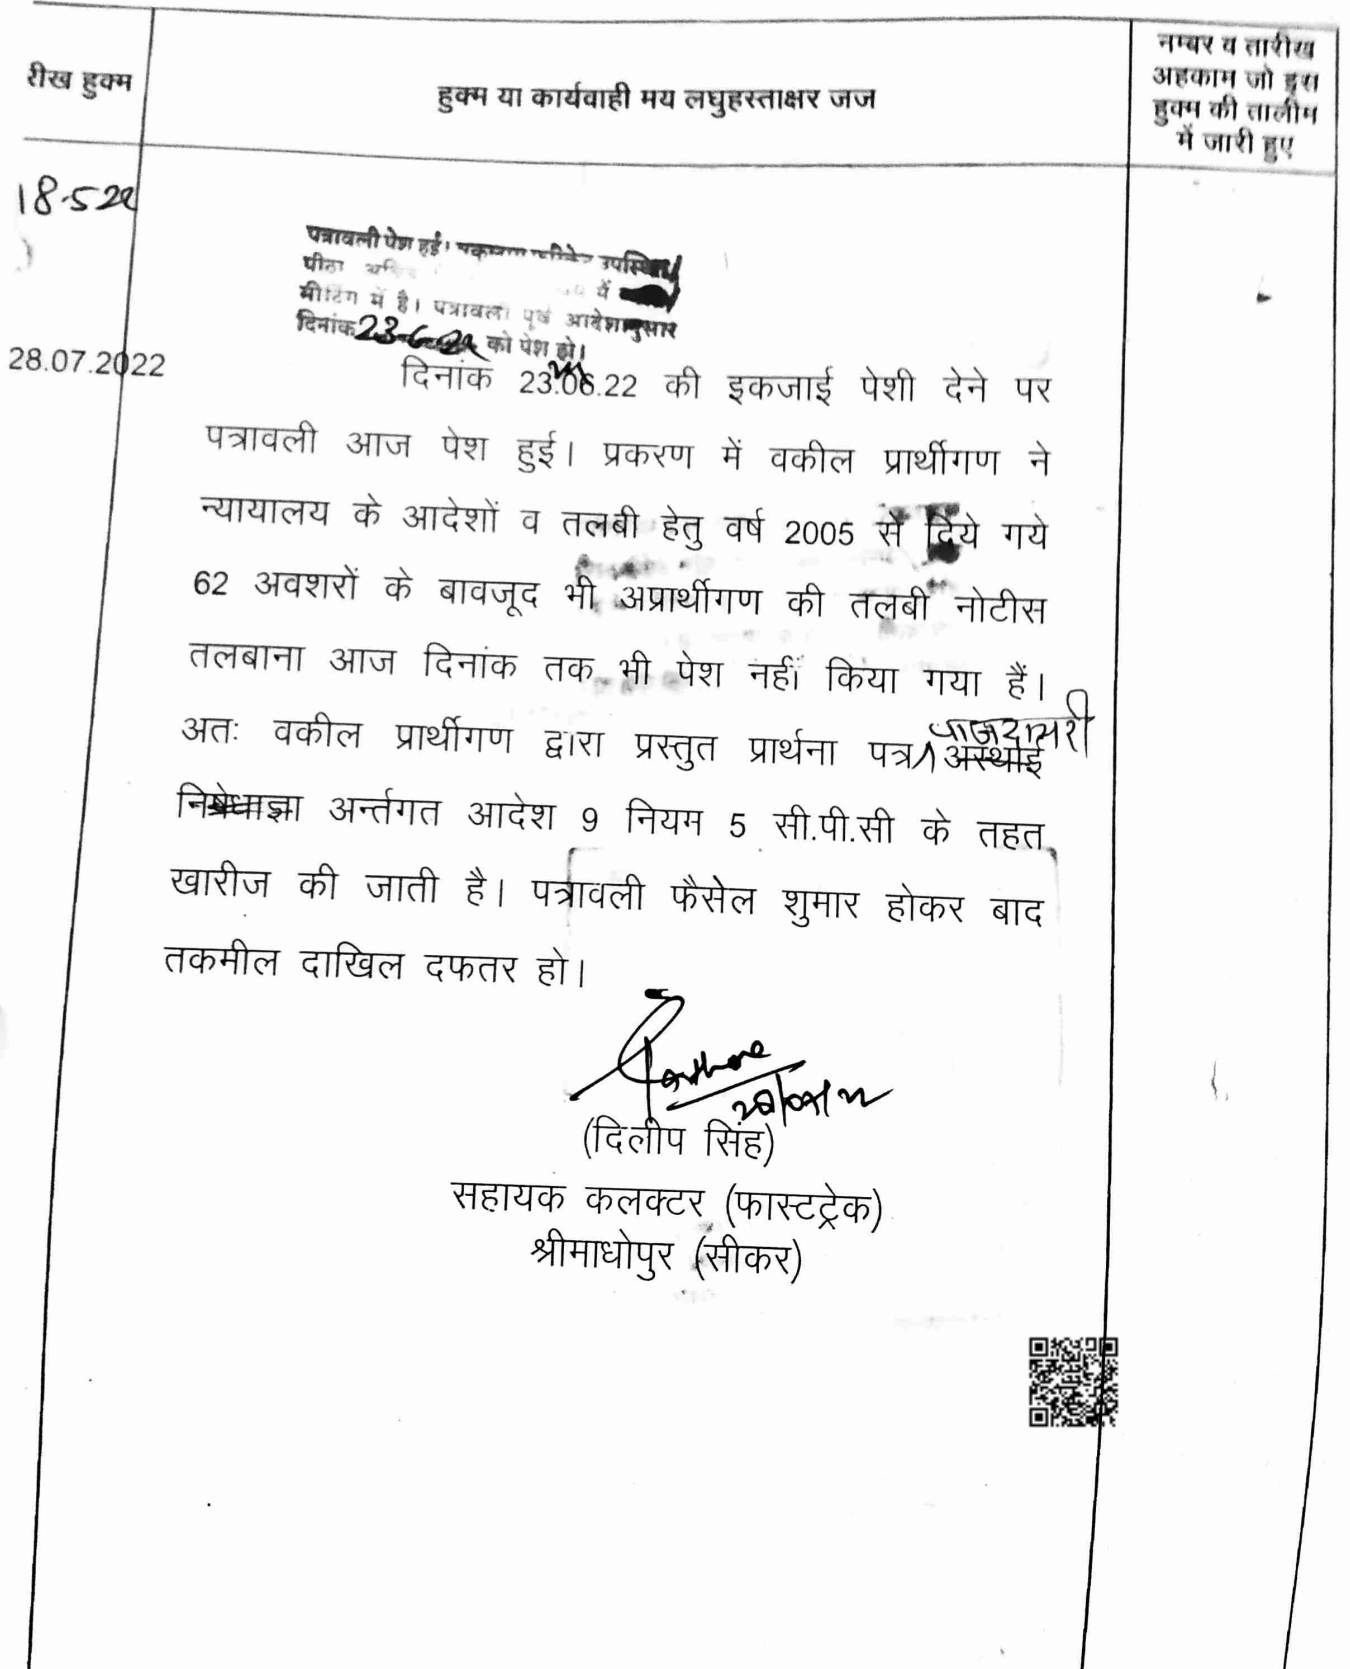 रीख हुक्म
हुक्म या कार्यवाही मय लघुहस्ताक्षर जज
नम्बर व तारीख
अहकाम जो इस
हुक्म की तालीम
में जारी हुए
18.5.22
पत्रावली पेश हुई। उपस्थित
पीठा में
मीटिंग में है। पत्रावली पूर्व आदेशानुसार
दिनांक 23-6-22 को पेश हो।
28.07.2022
दिनांक 23.06.22 की इकजाई पेशी देने पर
पत्रावली आज पेश हुई। प्रकरण में वकील प्रार्थीगण ने
न्यायालय के आदेशों व तलबी हेतु वर्ष 2005 से दिये गये
62 अवशरों के बावजूद भी अप्रार्थीगण की तलबी नोटीस
तलबाना आज दिनांक तक भी पेश नहीं किया गया हैं।
अतः वकील प्रार्थीगण द्वारा प्रस्तुत प्रार्थना पत्र अस्थाई
निषेधाज्ञा अर्न्तगत आदेश 9 नियम 5 सी.पी.सी के तहत
खारीज की जाती है। पत्रावली फैसेल शुमार होकर बाद
तकमील दाखिल दफतर हो।
(दिलीप सिंह)
सहायक कलक्टर (फास्टट्रेक)
श्रीमाधोपुर (सीकर)